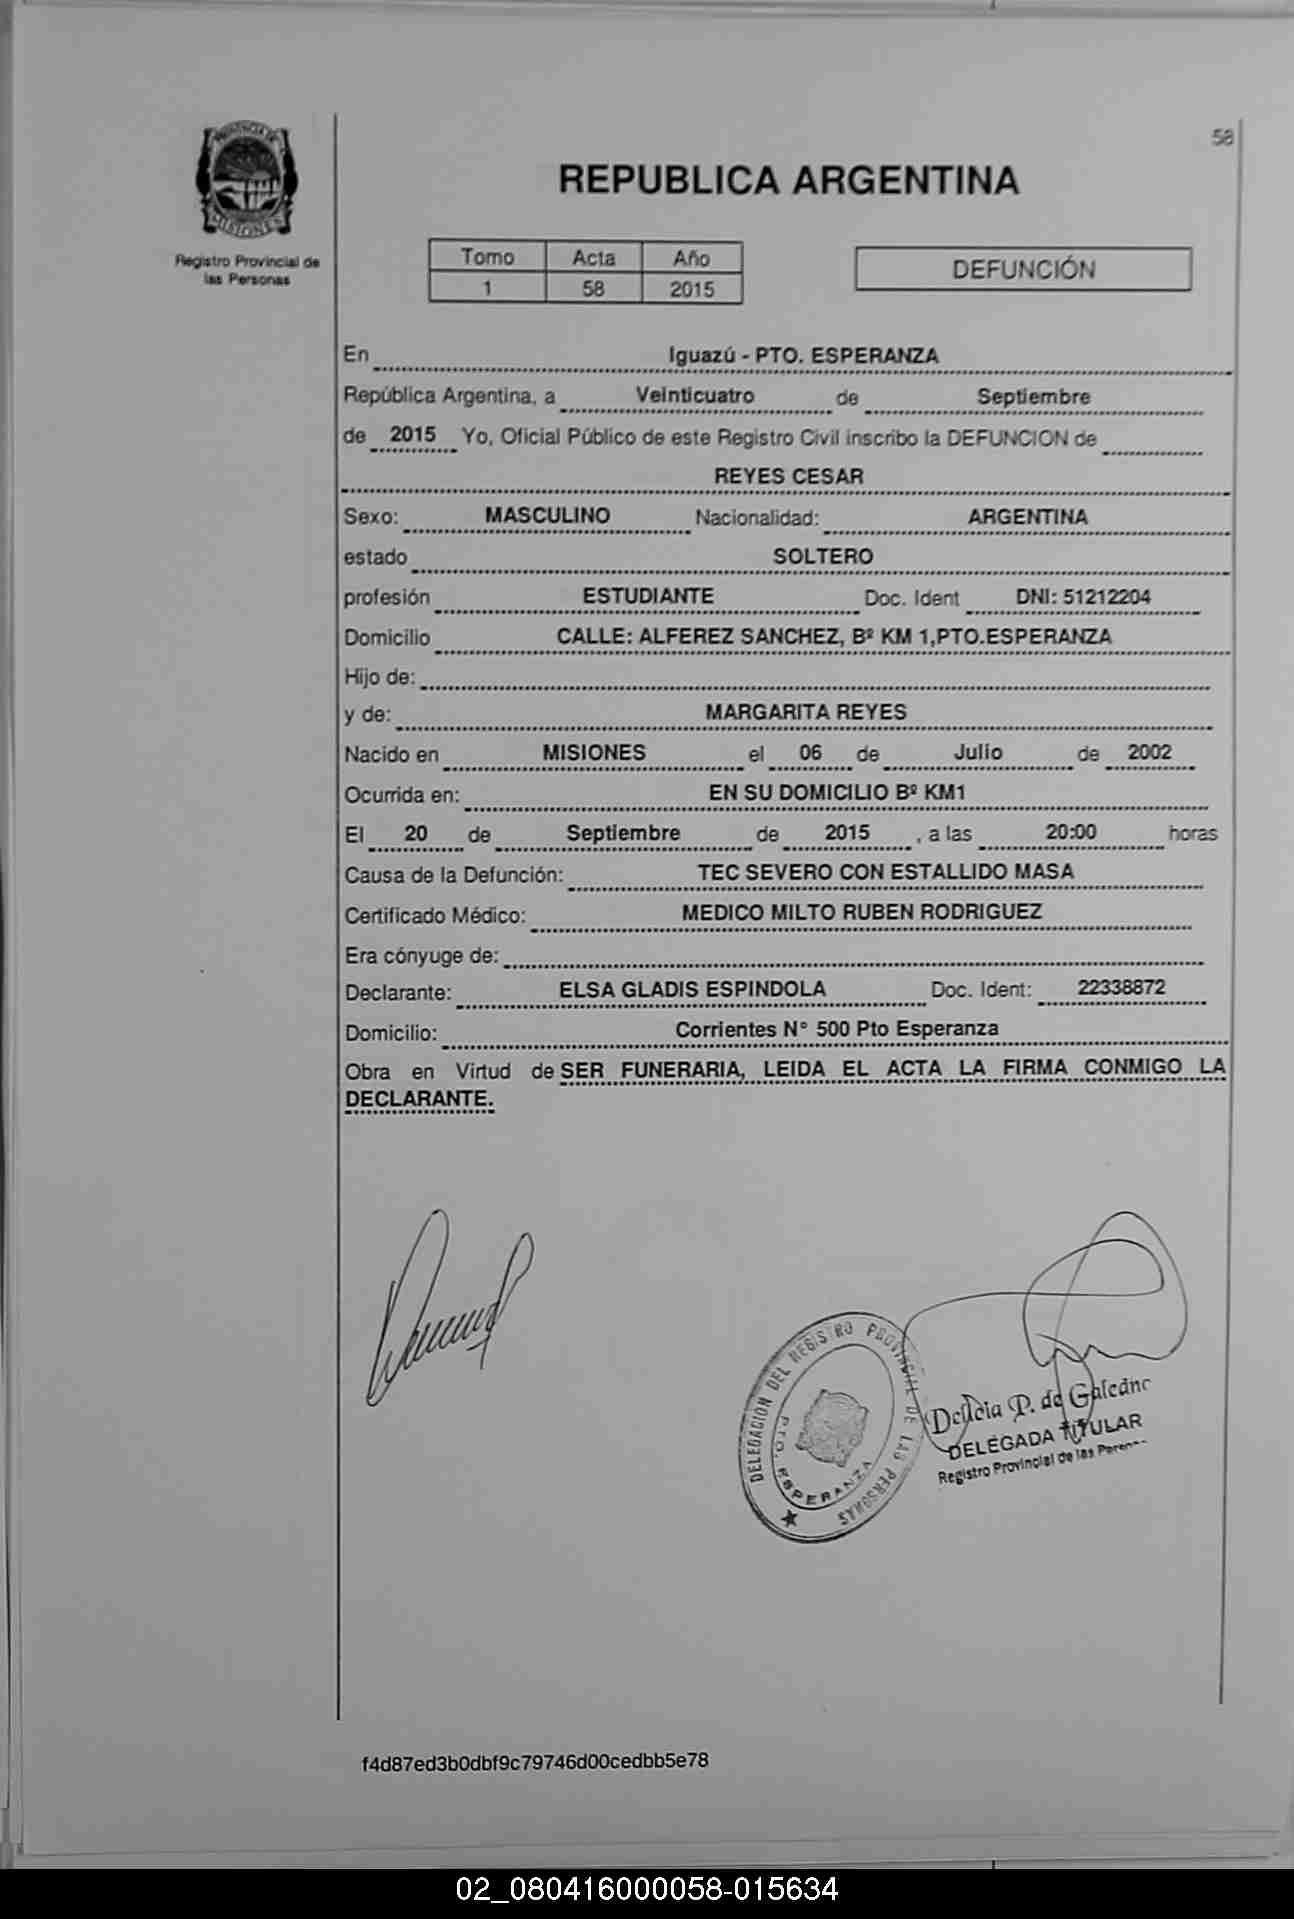 58
PROVINCIA DE
MISIONES
Registro Provincial de
las Personas
REPUBLICA ARGENTINA
Tomo Acta Año
1 58 2015
DEFUNCIÓN
En Iguazú - PTO. ESPERANZA
República Argentina, a Veinticuatro de Septiembre
de 2015 Yo, Oficial Público de este Registro Civil inscribo la DEFUNCION de
REYES CESAR
Sexo: MASCULINO Nacionalidad: ARGENTINA
estado SOLTERO
profesión ESTUDIANTE Doc. Ident DNI: 51212204
Domicilio CALLE: ALFEREZ SANCHEZ, Bº KM 1,PTO.ESPERANZA
Hijo de:
y de: MARGARITA REYES
Nacido en MISIONES el 06 de Julio de 2002
Ocurrida en: EN SU DOMICILIO Bº KM1
El 20 de Septiembre de 2015 , a las 20:00 horas
Causa de la Defunción: TEC SEVERO CON ESTALLIDO MASA
Certificado Médico: MEDICO MILTO RUBEN RODRIGUEZ
Era cónyuge de:
Declarante: ELSA GLADIS ESPINDOLA Doc. Ident: 22338872
Domicilio: Corrientes N° 500 Pto Esperanza
Obra en Virtud de SER FUNERARIA, LEIDA EL ACTA LA FIRMA CONMIGO LA
DECLARANTE.
DELEGACION DEL REGISTRO PROVINCIAL DE LAS PERSONAS
PTO. ESPERANZA
P. de Galeano
DELEGADA TITULAR
Registro Provincial de las
f4d87ed3b0dbf9c79746d00cedbb5e78
02_080416000058-015634